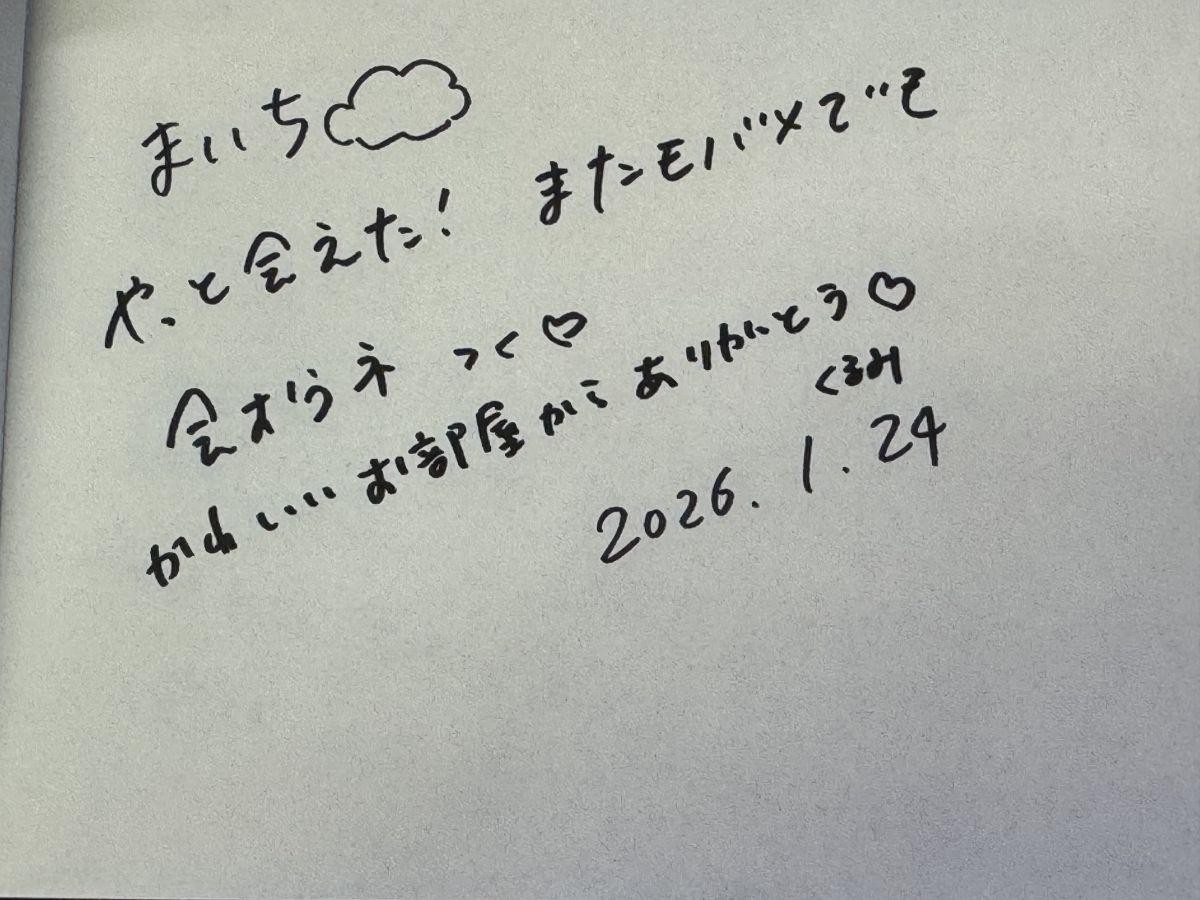 まいち
やっと会えた！
またモバメでも
会おうネ つく♡
かわいいお部屋からありがとう♡
くるみ
2026.1.24